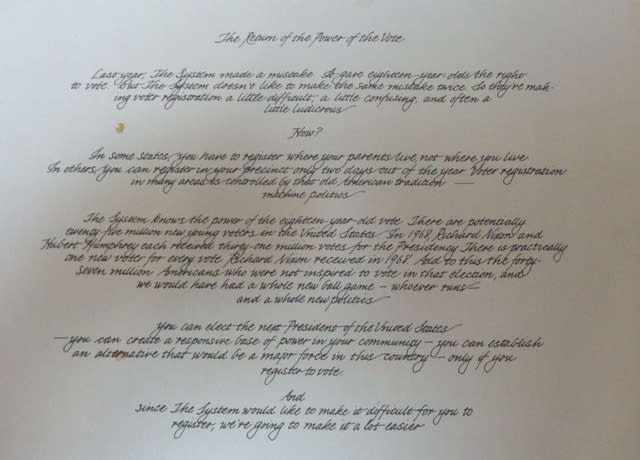 The Return of the Power of the Vote
Last year, The System made a mistake. It gave eighteen-year-olds the right
to vote. But The System doesn't like to make the same mistake twice. So they're mak-
ing voter registration a little difficult, a little confusing, and often a
little ludicrous
How?
In some states, you have to register where your parents live, not where you live
In others, you can register in your precinct only two days out of the year. Voter registration
in many areas is controlled by that old American tradition —
machine politics
The System knows the power of the eighteen-year-old vote. There are potentially
twenty-five million new young voters in the United States. In 1968, Richard Nixon and
Hubert Humphrey each received thirty-one million votes for the Presidency. There is practically
one new voter for every vote Richard Nixon received in 1968. Add to this the forty-
seven million Americans who were not inspired to vote in that election, and
we would have had a whole new ball game – whoever runs –
and a whole new politics
you can elect the next President of the United States
– you can create a responsive base of power in your community – you can establish
an alternative that would be a major force in this country – only if you
register to vote.
And
since The System would like to make it difficult for you to
register, we're going to make it a lot easier